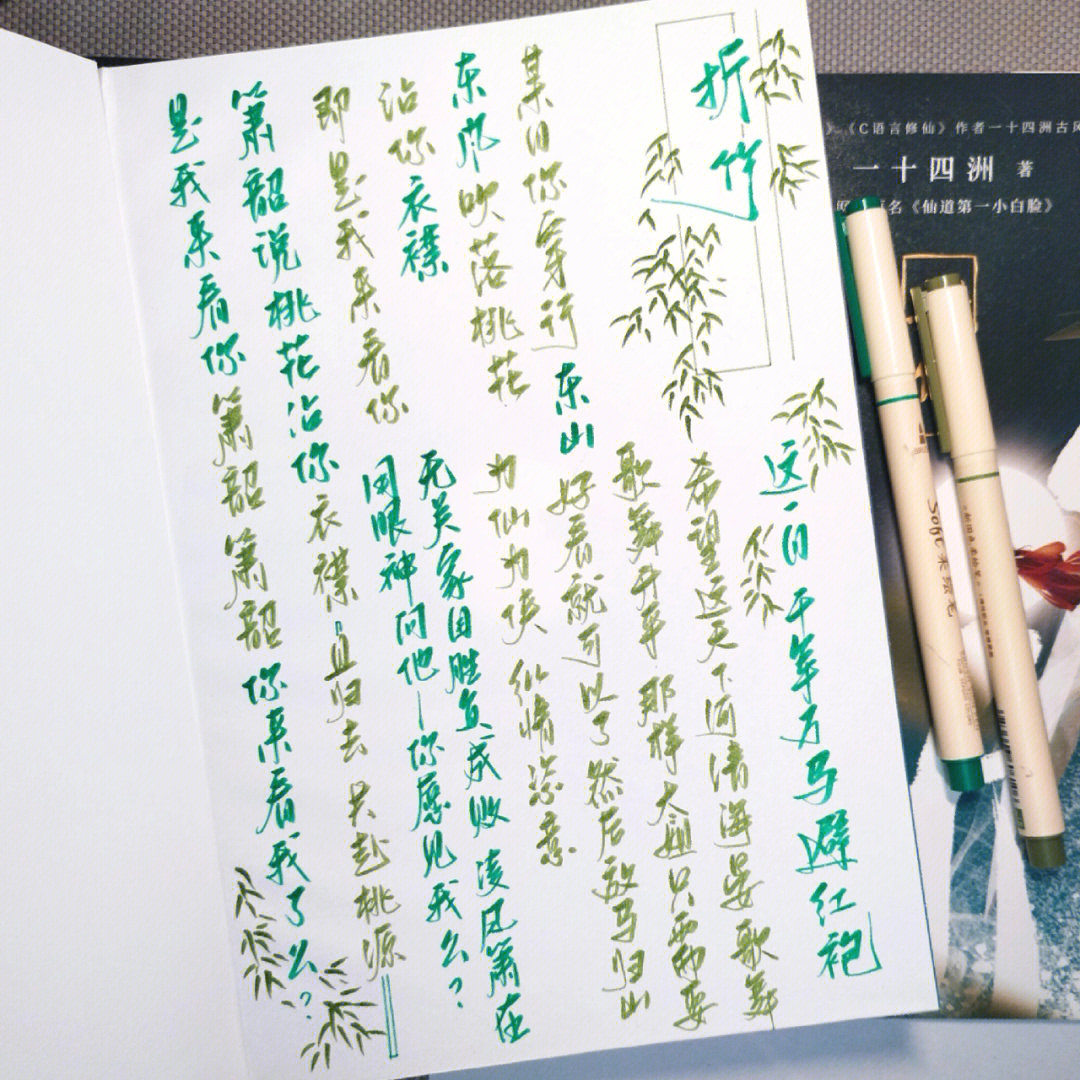 折竹
这一日 千军万马避红袍
希望这天下河清海晏 歌舞
歌舞升平 那样 大姐只需要
好看就可以了 然后放马归山
为仙为侠 纵情恣意
无关家国胜负成败 凌凤箫在
用眼神问他—你愿见我么？
某日你穿行东山
东风吹落桃花
沾你衣襟
即是我来看你
萧韶说桃花沾你衣襟"且归去 共赴桃源
是我来看你 萧韶 萧韶 你来看我了么？
》《C语言修仙》作者一十四洲古风
一十四洲 著
名《仙道第一小白脸》